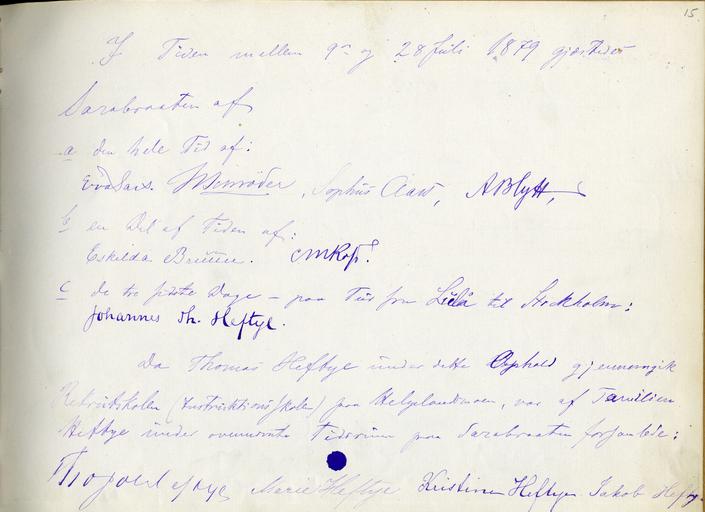 15
I Tiden mellem 9de og 28 Juli 1879 gjæstedes
Sarabraaten af
a den hele Tid af:
Eva Sars. , Sophus Aars, A Blytt,
b en Del af Tiden af:
Eskilda
c de tre sidste Dage – paa Tur fra Luleå til Stockholm:
Johannes Th. Heftye.
Da Thomas Heftye under dette Ophold gjennemgik
Rekrutskolen (Instruktionsskolen) paa Helgelandsmoen, var af Familien
Heftye under ovennævnte Tidsrum paa Sarabraaten forsamlede:
Th Joh Heftye Marie Heftye Kristine Heftye Jakob Heftye